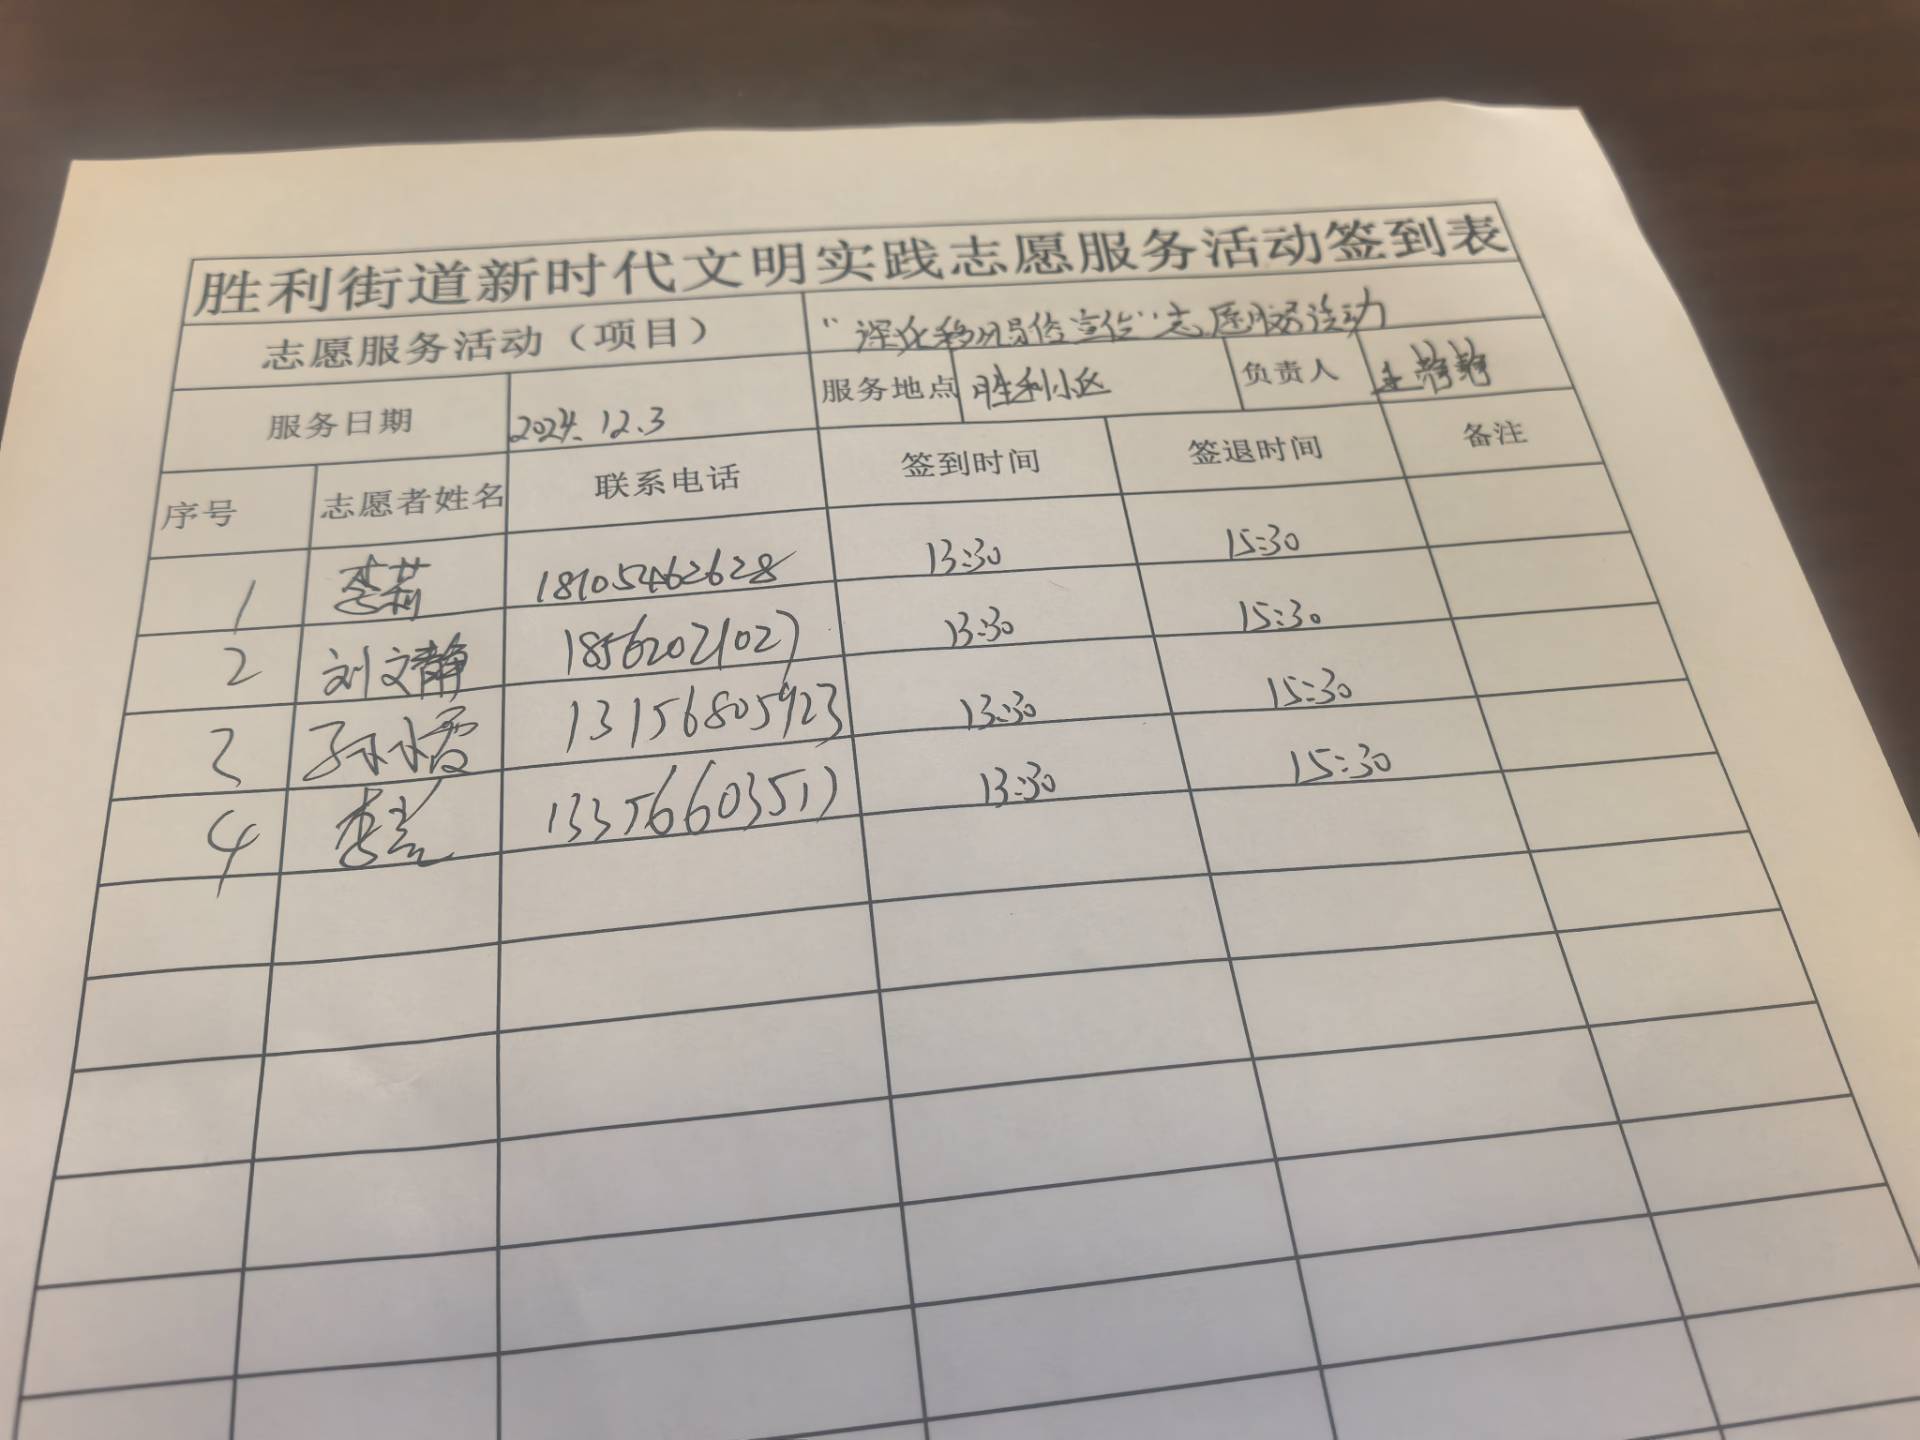 胜利街道新时代文明实践志愿服务活动签到表
志愿服务活动（项目） “深化移风易俗宣传”志愿服务活动
服务日期 2024.12.3 服务地点 胜利小区 负责人 王静静
序号 志愿者姓名 联系电话 签到时间 签退时间 备注
1 李莉 18105462628 13:30 15:30
2 刘文静 18562021027 13:30 15:30
3 孙小霞 13156805923 13:30 15:30
4 李 13356603517 13:30 15:30